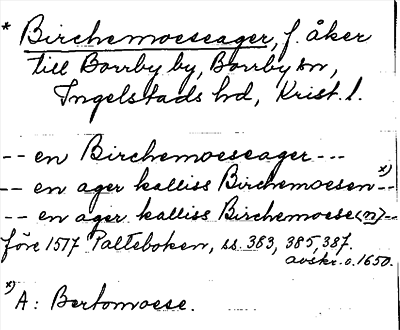 * Birchemoeseager, f. åker
till Borrby by, Borrby sn,
Ingelstads hd, Krist. l.
-- en Birchemoeseager ---
-- en ager kalliss Birchemoesen x) --
-- en ager kalliss Birchemoese(n) --
före 1517 Palteboken, ss. 383, 385, 387.
avskr. o. 1650.
x) A: Bertomoese.